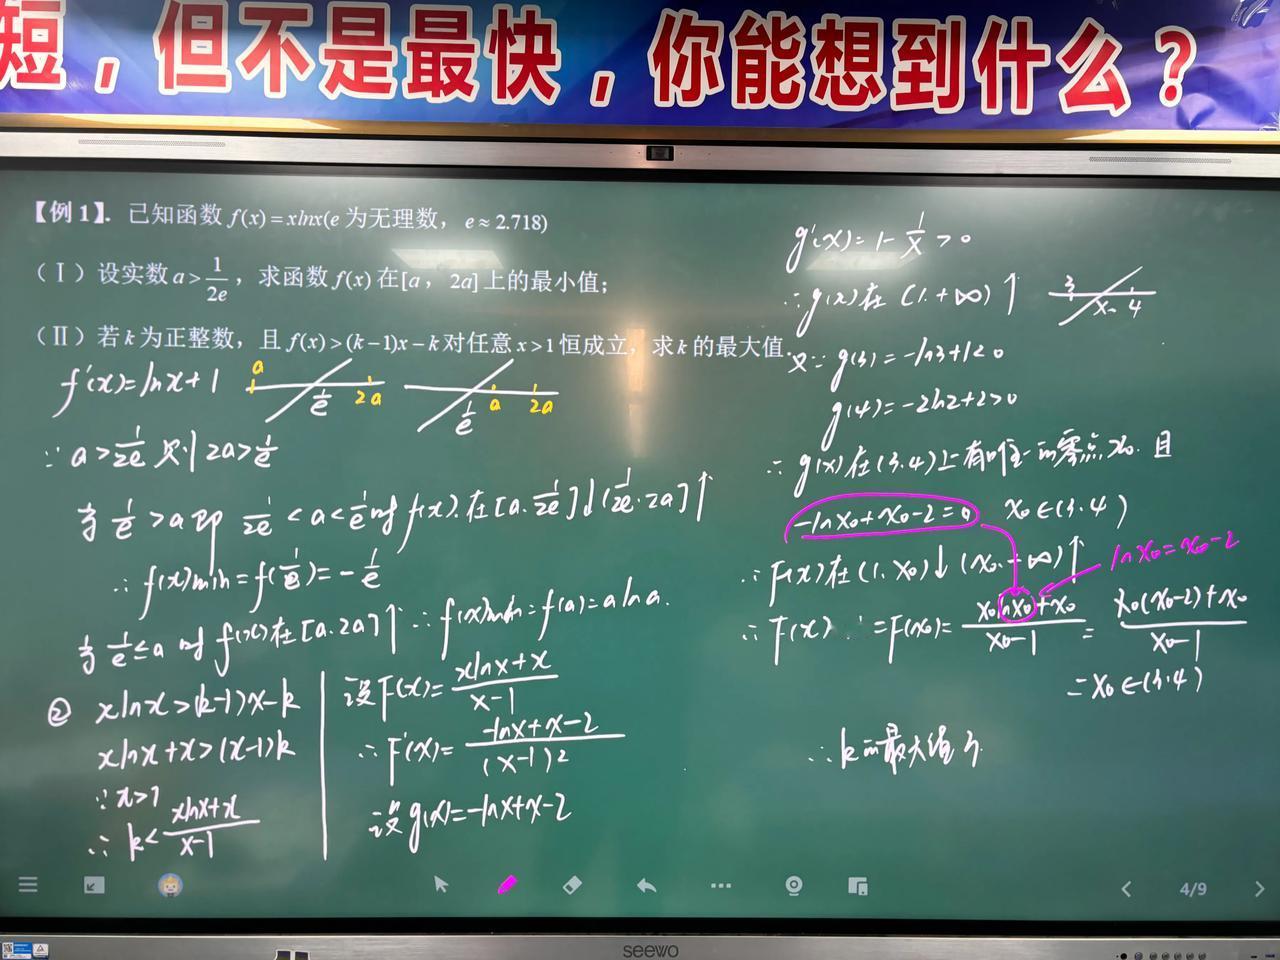 短，但不是最快，你能想到什么？
【例1】. 已知函数 f(x)=xlnx(e 为无理数， e≈2.718)
（Ⅰ）设实数 a>1/2e，求函数 f(x) 在[a，2a]上的最小值；
（Ⅱ）若 k 为正整数，且 f(x)>(k-1)x-k 对任意 x>1 恒成立，求 k 的最大值.
f'(x)=lnx+1
a 1/e 2a
1/e a 2a
∵ a>1/2e 则 2a>1/e
当 1/e >a 即 1/2e <a<1/e 时 f(x).在[a.1/2e]↓(1/2e.2a]↑
∴ f(x)min=f(1/e)=-1/e
当 1/e≤a 时 f(x)在[a.2a]↑ ∴ f(x)min=f(a)=alna.
② xlnx>(k-1)x-k
xlnx+x>(x-1)k
∵ x>1
∴ k< xlnx+x/x-1
设F(x)= xlnx+x/x-1
∴ F'(x)= -lnx+x-2/(x-1)²
设g(x)=-lnx+x-2
g'(x)=1-1/x>0
∴ g(x)在(1.+∞)↑
3 x₀ 4
又∵ g(3)=-ln3+1<0
g(4)=-2ln2+2>0
∴ g(x)在(3.4)上有唯一的零点x₀. 且
-lnx₀+x₀-2=0 x₀∈(3.4)
∴ F(x)在(1.x₀)↓(x₀.+∞)↑ lnx₀=x₀-2
∴ F(x) =F(x₀)= x₀lnx₀+x₀/x₀-1 = x₀(x₀-2)+x₀/x₀-1
=x₀∈(3.4)
∴ k的最大值3.
4/9
seewo